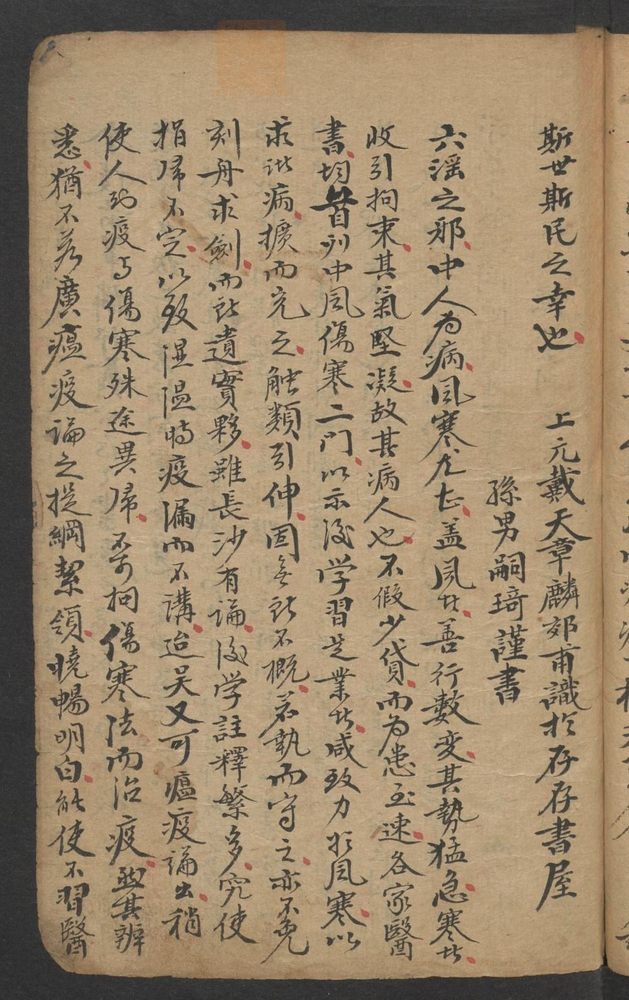 斯世斯民之幸也　上元戴天章麟郊甫識於存存書屋
孫男嗣琦謹書
六淫之邪中人为病風寒尤甚盖風者善行数变其勢猛急寒者
收引拘束其氣堅凝故其病人也不假少貸而为患至速各家醫
書均首列中風傷寒二门以示後学習是業者咸致力於風寒以
求诸病擴而充之触類引伸固無所不概若執而守之亦不免
刻舟求劍而所遺實夥雖長沙有論後学註釋繁多究使
指归不定以致湿温時疫漏而不講迨吴又可瘟疫論出稍
使人知疫与傷寒殊途異归不可拘傷寒法而治疫然其辨
悉猶不若廣瘟疫論之提綱絜領曉暢明白能使不習醫